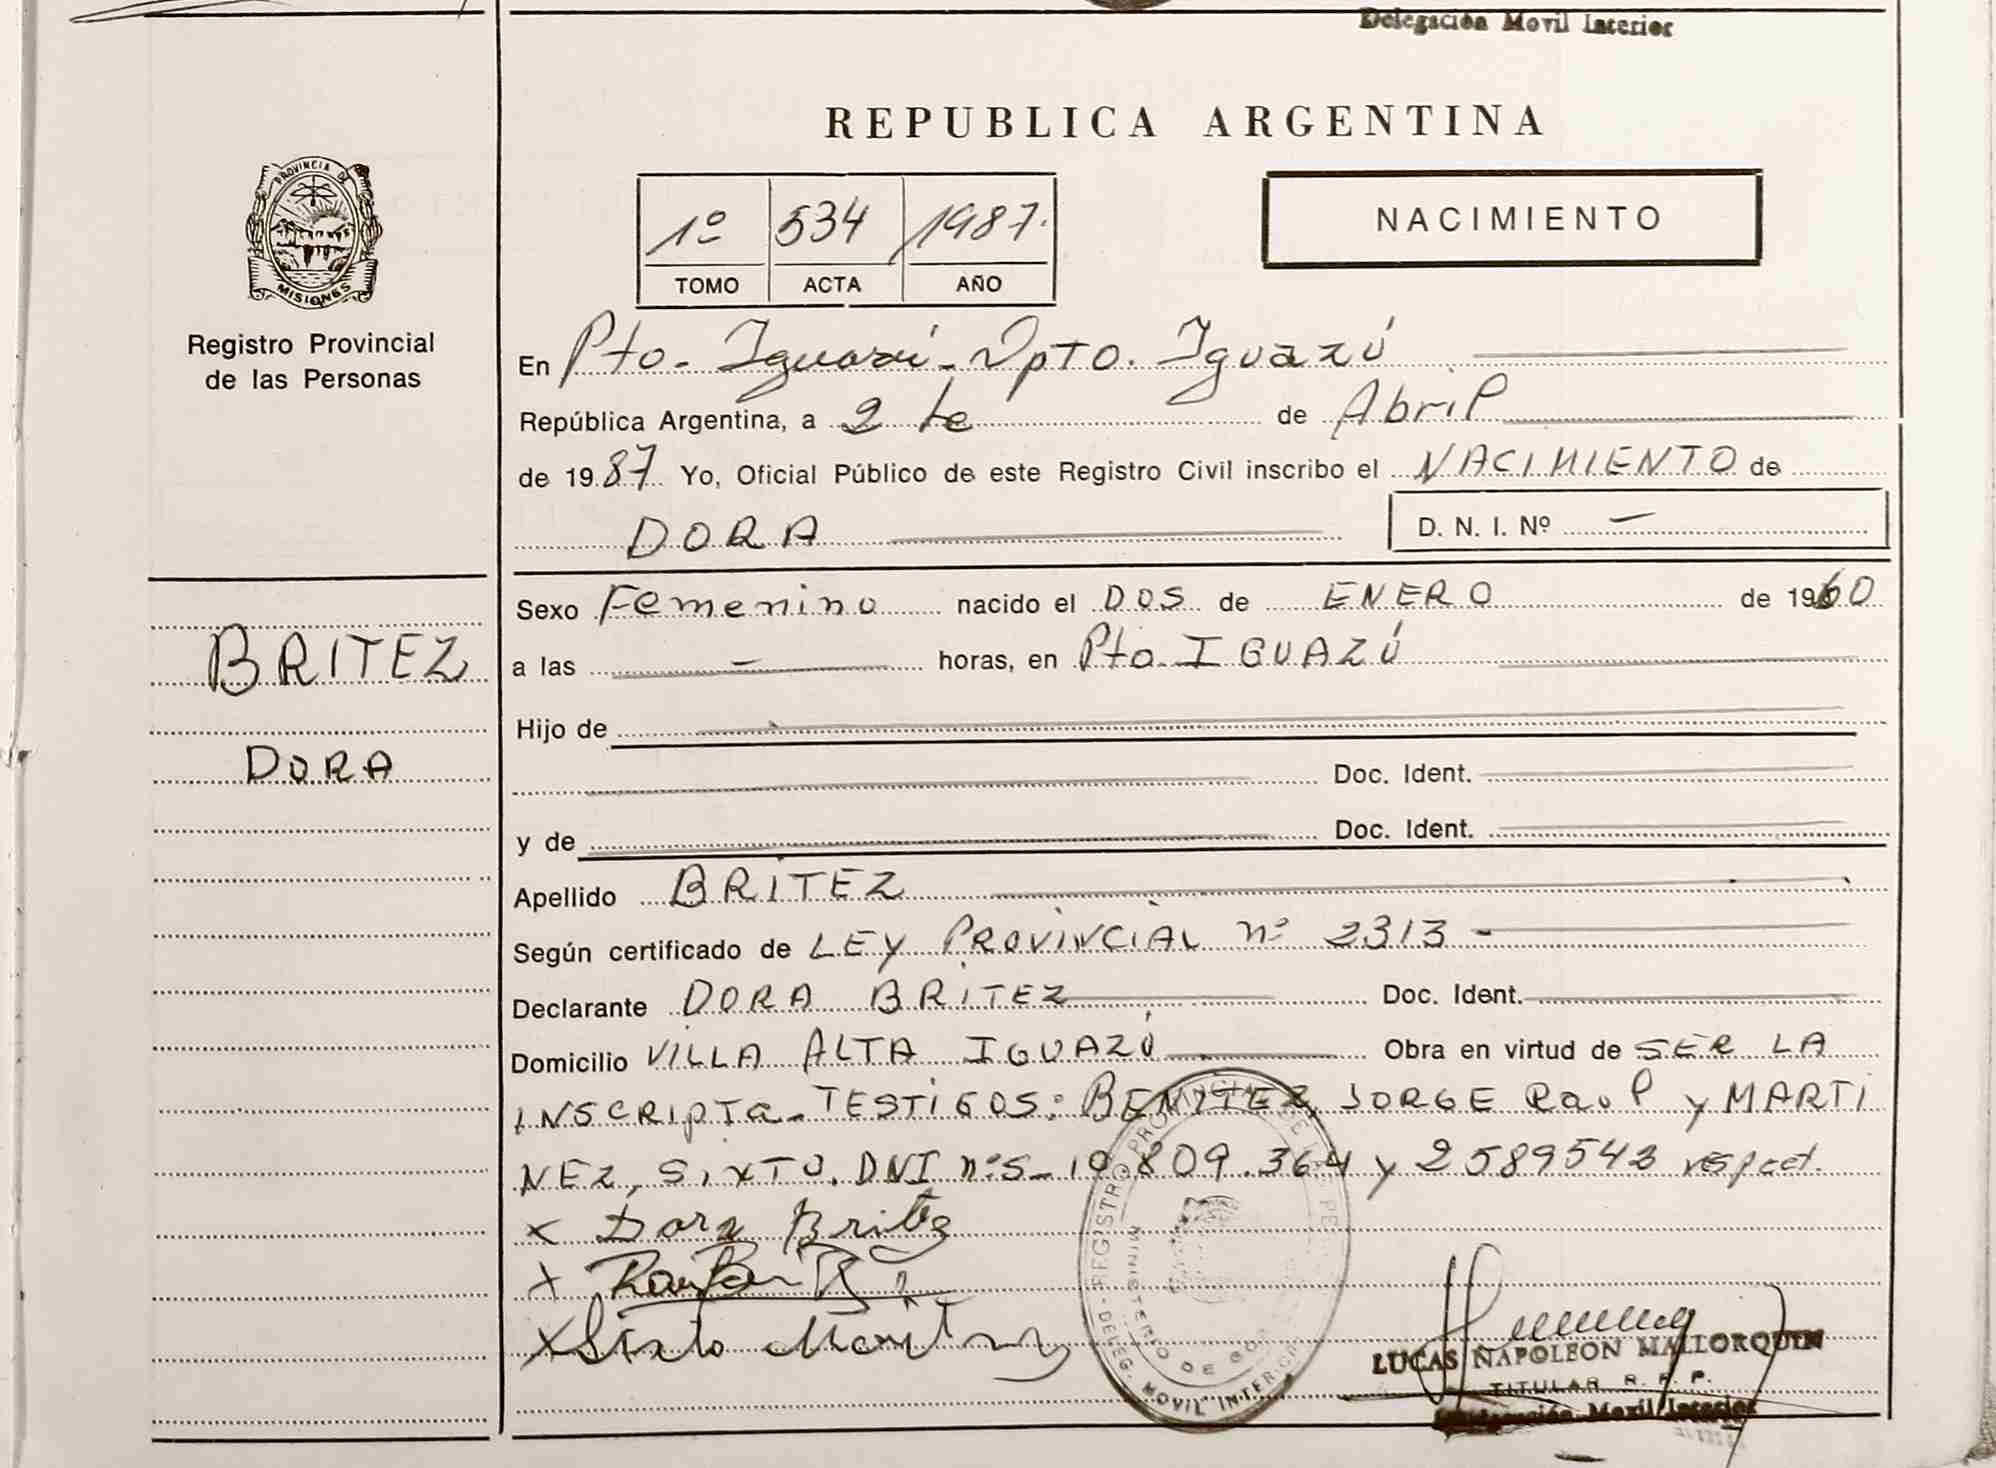 Delegación Movil Interior
REPUBLICA ARGENTINA
PROVINCIA DE
MISIONES
Registro Provincial
de las Personas
1º 534 1987.
TOMO ACTA AÑO
NACIMIENTO
En Pto. Iguazú - Dpto. Iguazú
República Argentina, a 2 de de Abril
de 1987 Yo, Oficial Público de este Registro Civil inscribo el NACIMIENTO de
DORA D. N. I. Nº —
BRITEZ
DORA
Sexo Femenino nacido el DOS de ENERO de 1960
a las — horas, en Pto. IGUAZÚ
Hijo de
Doc. Ident.
y de Doc. Ident.
Apellido BRITEZ
Según certificado de LEY PROVINCIAL nº 2313 -
Declarante DORA BRITEZ Doc. Ident.
Domicilio VILLA ALTA IGUAZÚ Obra en virtud de SER LA
INSCRIPTA - TESTIGOS: BENITEZ, JORGE RaUl y MARTI
NEZ, SIXTO. DNI nºs - 10 809.364 y 2589543 respect.
x Dora Britez
x
x Sixto Martinez
REGISTRO PROVINCIAL DE LAS PE
MINISTERIO DE GOB
DELEG. MOVIL INTERIOR
LUCAS NAPOLEON MALLORQUIN
TITULAR R. P. P.
Delegación Movil Interior